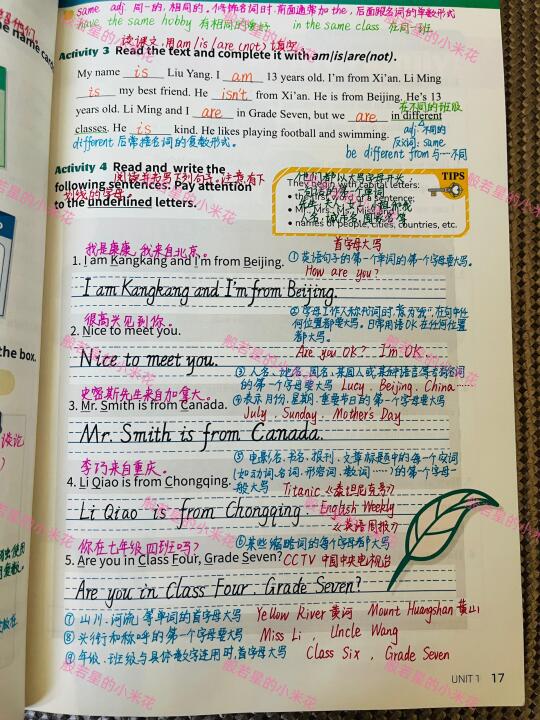 same adj. 同一的,相同的。修饰名词时,前面通常加the,后面跟名词的复数形式
have the same hobby 有相同的爱好 in the same class 在同一班
读课文,用am/is/are(not)填空
Activity 3 Read the text and complete it with am/is/are(not).
My name is Liu Yang. I am 13 years old. I'm from Xi'an. Li Ming
is my best friend. He isn't from Xi'an. He is from Beijing. He's 13
在不同的班级
years old. Li Ming and I are in Grade Seven, but we are in different
classes. He is kind. He likes playing football and swimming.
adj. 不同的
反义词: same
different后常接名词的复数形式。
be different from 与…不同
Activity 4 Read and write the
following sentences. Pay attention
to the underlined letters.
阅读并书写下列句子,注意有下
划线的字母。
TIPS
They begin with capital letters:
• the first word of a sentence;
• Mr., Mrs., Ms., Miss and I;
• names of people, cities, countries, etc.
他们都以大写字母开头:
一句话的第一个单词
人名,城市名,国家名等
首字母大写
我是康康,我来自北京。
①英语句子的第一个单词的第一个字母要大写。
1. I am Kangkang and I'm from Beijing.
How are you?
I am Kangkang and I'm from Beijing.
②字母I作人称代词时,意为"我",在句中任
何位置都要大写。日常用语OK在任何位置
都大写。
很高兴见到你。
2. Nice to meet you.
Are you OK? I'm OK.
Nice to meet you.
③人名、地名、国名、某国人或某种语言等专有名词
的第一个字母要大写 Lucy. Beijing. China……
史密斯先生来自加拿大。
④表示月份,星期,重要节日的第一个字母要大写
3. Mr. Smith is from Canada.
July. Sunday. Mother's Day
Mr. Smith is from Canada.
⑤电影名、书名、报刊、文章标题中的每一个实词
(如动词,名词,形容词,数词……)的第一个字母一
般大写 Titanic 《泰坦尼克号》
李巧来自重庆。
4. Li Qiao is from Chongqing.
Li Qiao is from Chongqing.
English Weekly
《英语周报》
⑥某些缩略词的每个字母都大写
你在七年级四班吗?
5. Are you in Class Four, Grade Seven?
CCTV 中国中央电视台
Are you in Class Four, Grade Seven?
⑦山川、河流等单词的首字母大写 Yellow River 黄河 Mount Huangshan 黄山
⑧头衔和称呼的第一个字母要大写 Miss Li, Uncle Wang
⑨年级、班级与具体数字连用时,首字母大写 Class Six, Grade Seven
UNIT 1 17
the box.
般若星的小米花